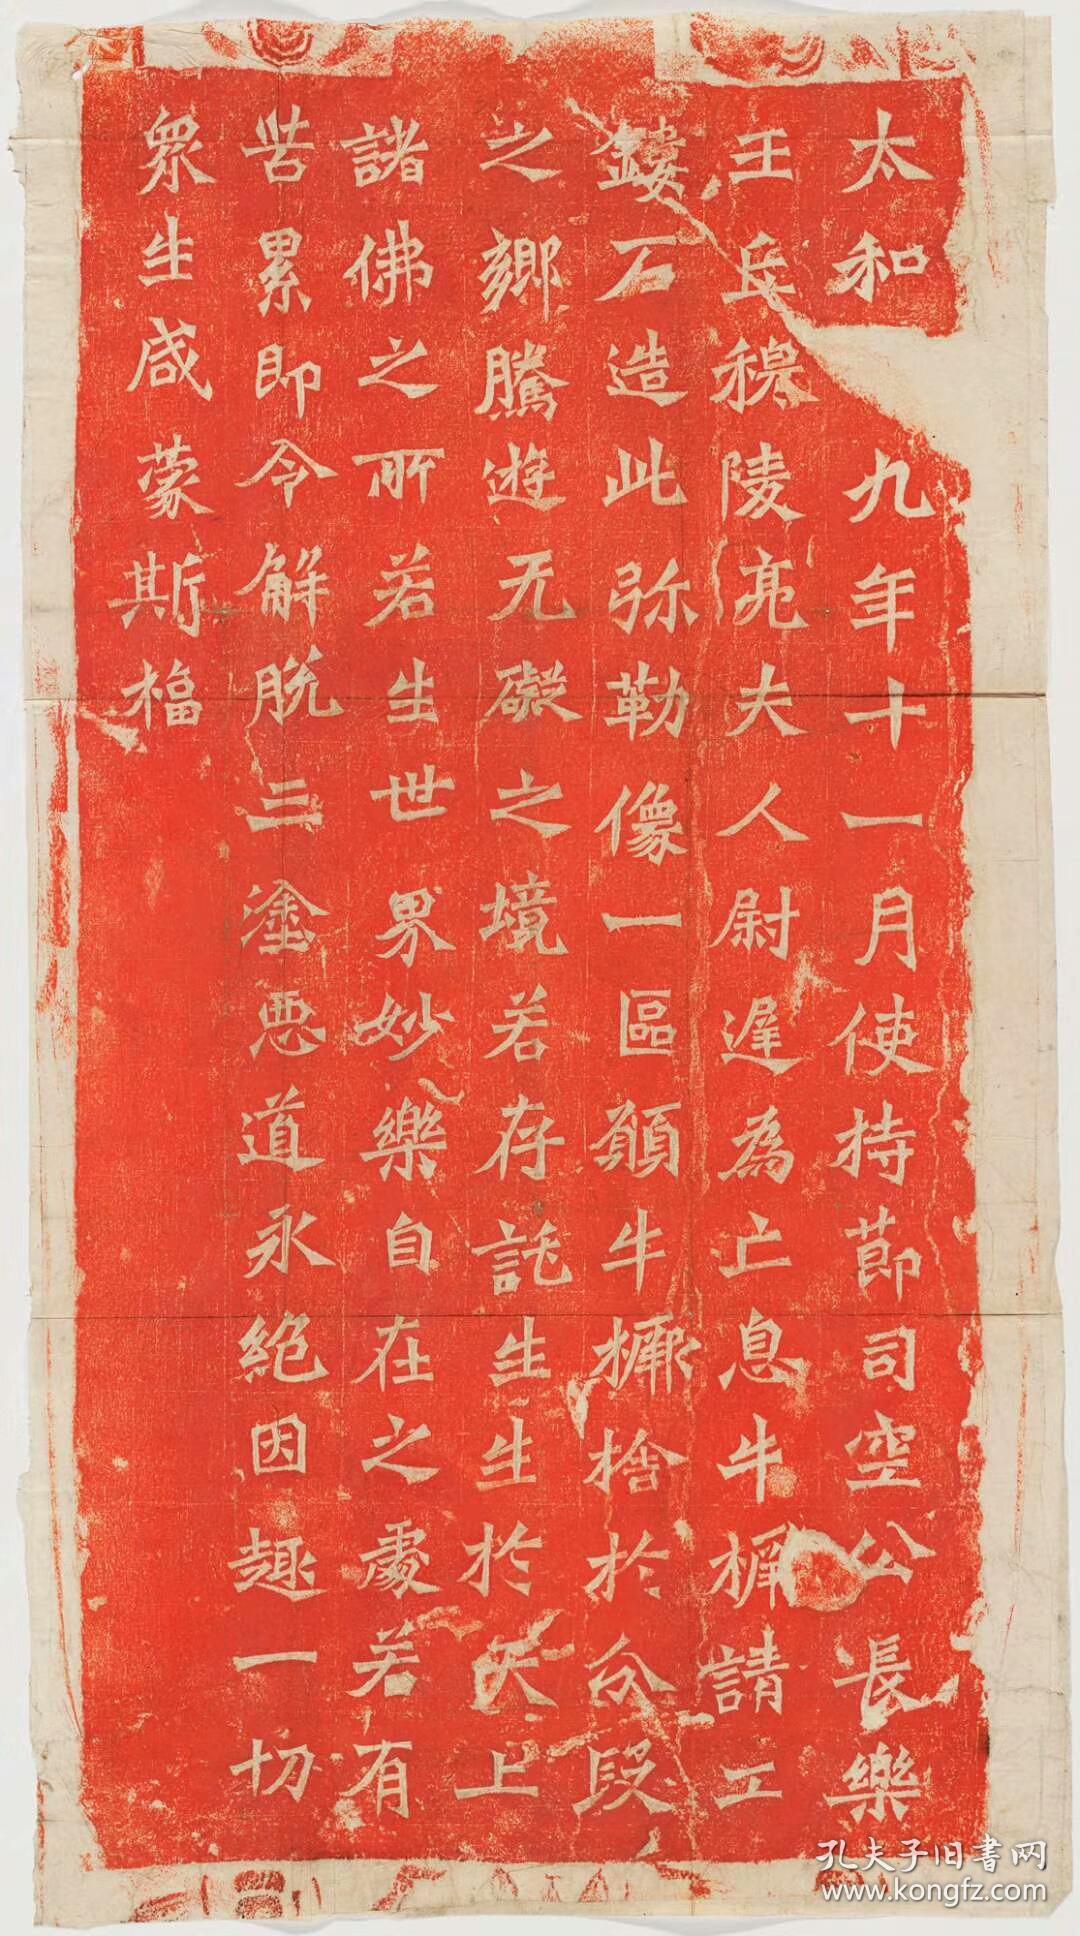 太和九年十一月使持節司空公長樂
王丘穆陵亮夫人尉遲為亡息牛橛請工
鏤石造此弥勒像一區願牛橛捨於分段
之鄉騰遊无礙之境若存託生生於天上
諸佛之所若生世界妙樂自在之處若有
苦累即令解脫三塗惡道永絕因趣一切
衆生咸蒙斯福
孔夫子旧書网
www.kongfz.com